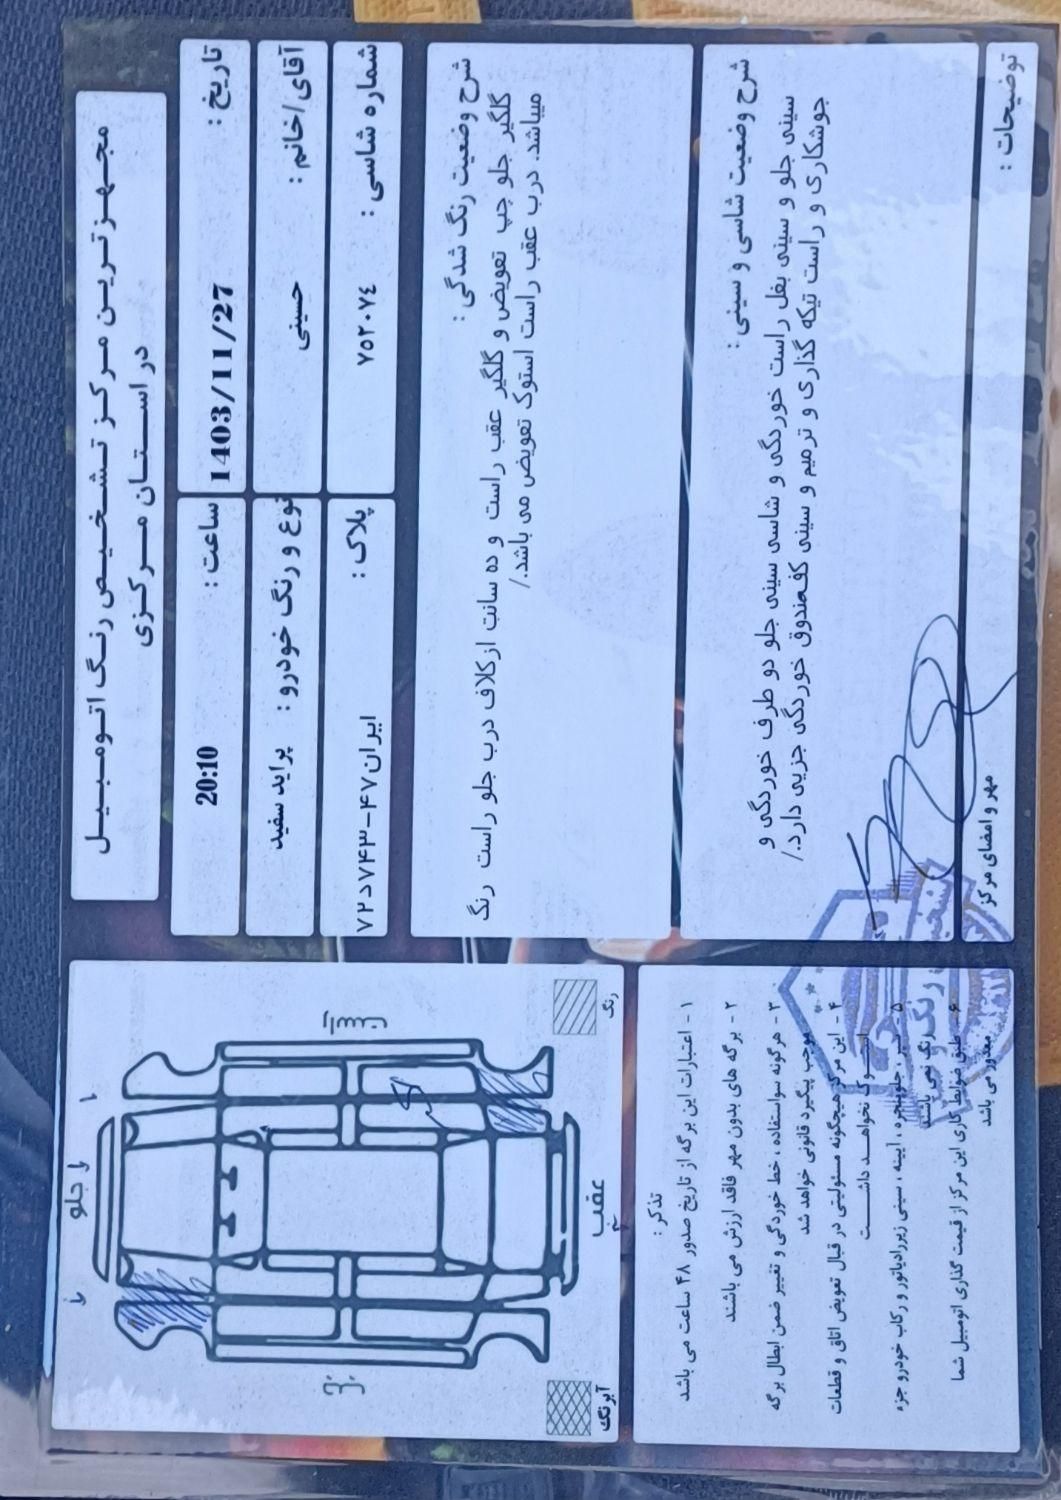 مجهزترین مرکز تشخیص رنگ اتومبیل
در استان مرکزی
تاریخ : 1403/11/27
ساعت : 20:10
آقای/خانم : حسینی
نوع و رنگ خودرو : پراید سفید
شماره شاسی : ۷۵۲۰۷٤
پلاک : ایران۴۷-۷۴۳د۷۲
شرح وضعیت رنگ شدگی :
گلگیر جلو چپ تعویض و گلگیر عقب راست و ده سانت ازکلاف درب جلو راست رنگ
میباشد. درب عقب راست استوک تعویض می باشد./
شرح وضعیت شاسی و سینی :
سینی جلو و سینی بغل راست خوردگی و شاسی سینی جلو دو طرف خوردگی و
جوشکاری و راست تیکه گذاری و ترمیم و سینی کف‌صندوق خوردگی جزیی دارد./
توضیحات :
مهر و امضای مرکز
جلو
عقب
رنگ
آبرنگ
تذکر :
۱- اعتبارات این برگه از تاریخ صدور ۴۸ ساعت می باشد
۲- برگه های بدون مهر فاقد ارزش می باشند
۳- هرگونه سواستفاده ، خط خوردگی و تغییر ضمن ابطال برگه
موجب پیگیرد قانونی خواهد شد
۴- این مرکز هیچگونه مسئولیتی در قبال تعویض اتاق و قطعات
نخواهد داشت
۵- جلوپنجره ، آیینه ، سینی زیررادیاتور و رکاب خودرو جزء
رنگ نمی باشند
۶- طبق ضوابط کاری این مرکز از قیمت گذاری اتومبیل شما
معذور می باشد